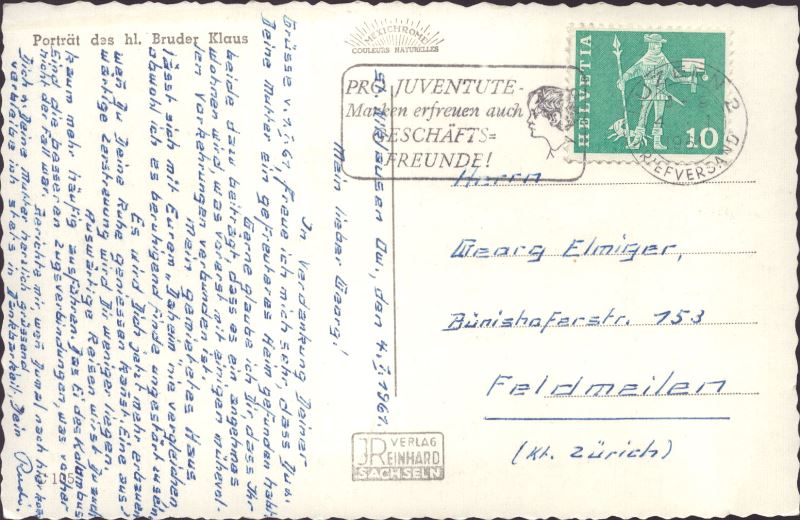 Porträt des hl. Bruder Klaus
MEXICHROME
COULEURS NATURELLES
PRO JUVENTUTE-
Marken erfreuen auch
GESCHÄFTS=
FREUNDE!
HELVETIA
10
BRIEFVERSAND
St. Niklausen Ow., den 4.I.1961.
Mein lieber Georg!
In Verdankung Deiner
Grüsse v. 1.I.61, freue ich mich sehr, dass Du u.
Deine Mutter ein gefreutes Heim gefunden habt.
Gerne glaube ich Dir dass Ihr
beide dazu beiträgt dass es ein angenehmes
wohnen wird, was vorerst mit einigen mühevol-
len Vorkehrungen verbunden ist.
Mein gemietetes Haus
lässt sich mit Eurem Daheim nie vergleichen
obwohl ich es beruhigend finde ungestört zu sein.
Es wird Dich jetzt mehr erbauen
wen Du Deine Ruhe geniessen kanst. Eine aus-
wärtige Zerstreuung wird Dir weniger liegen.
Auswärtige Reisen wirst Du auch
kaum mehr häufig ausführen. Das Ei des Kolumbus
sind die besseren Zugsverbindungen was vorher
nicht der Fall war. Berichte mir, wen Du mal nach hier kommst
Dich u. Deine Mutter herlich grüssend
verbleibe ich stets in Dankbarkeit Dein
Herrn
Georg Elmiger,
Bünishoferstr. 153
Feldmeilen
(Kt. Zürich)
JR VERLAG
REINHARD
SACHSELN
105